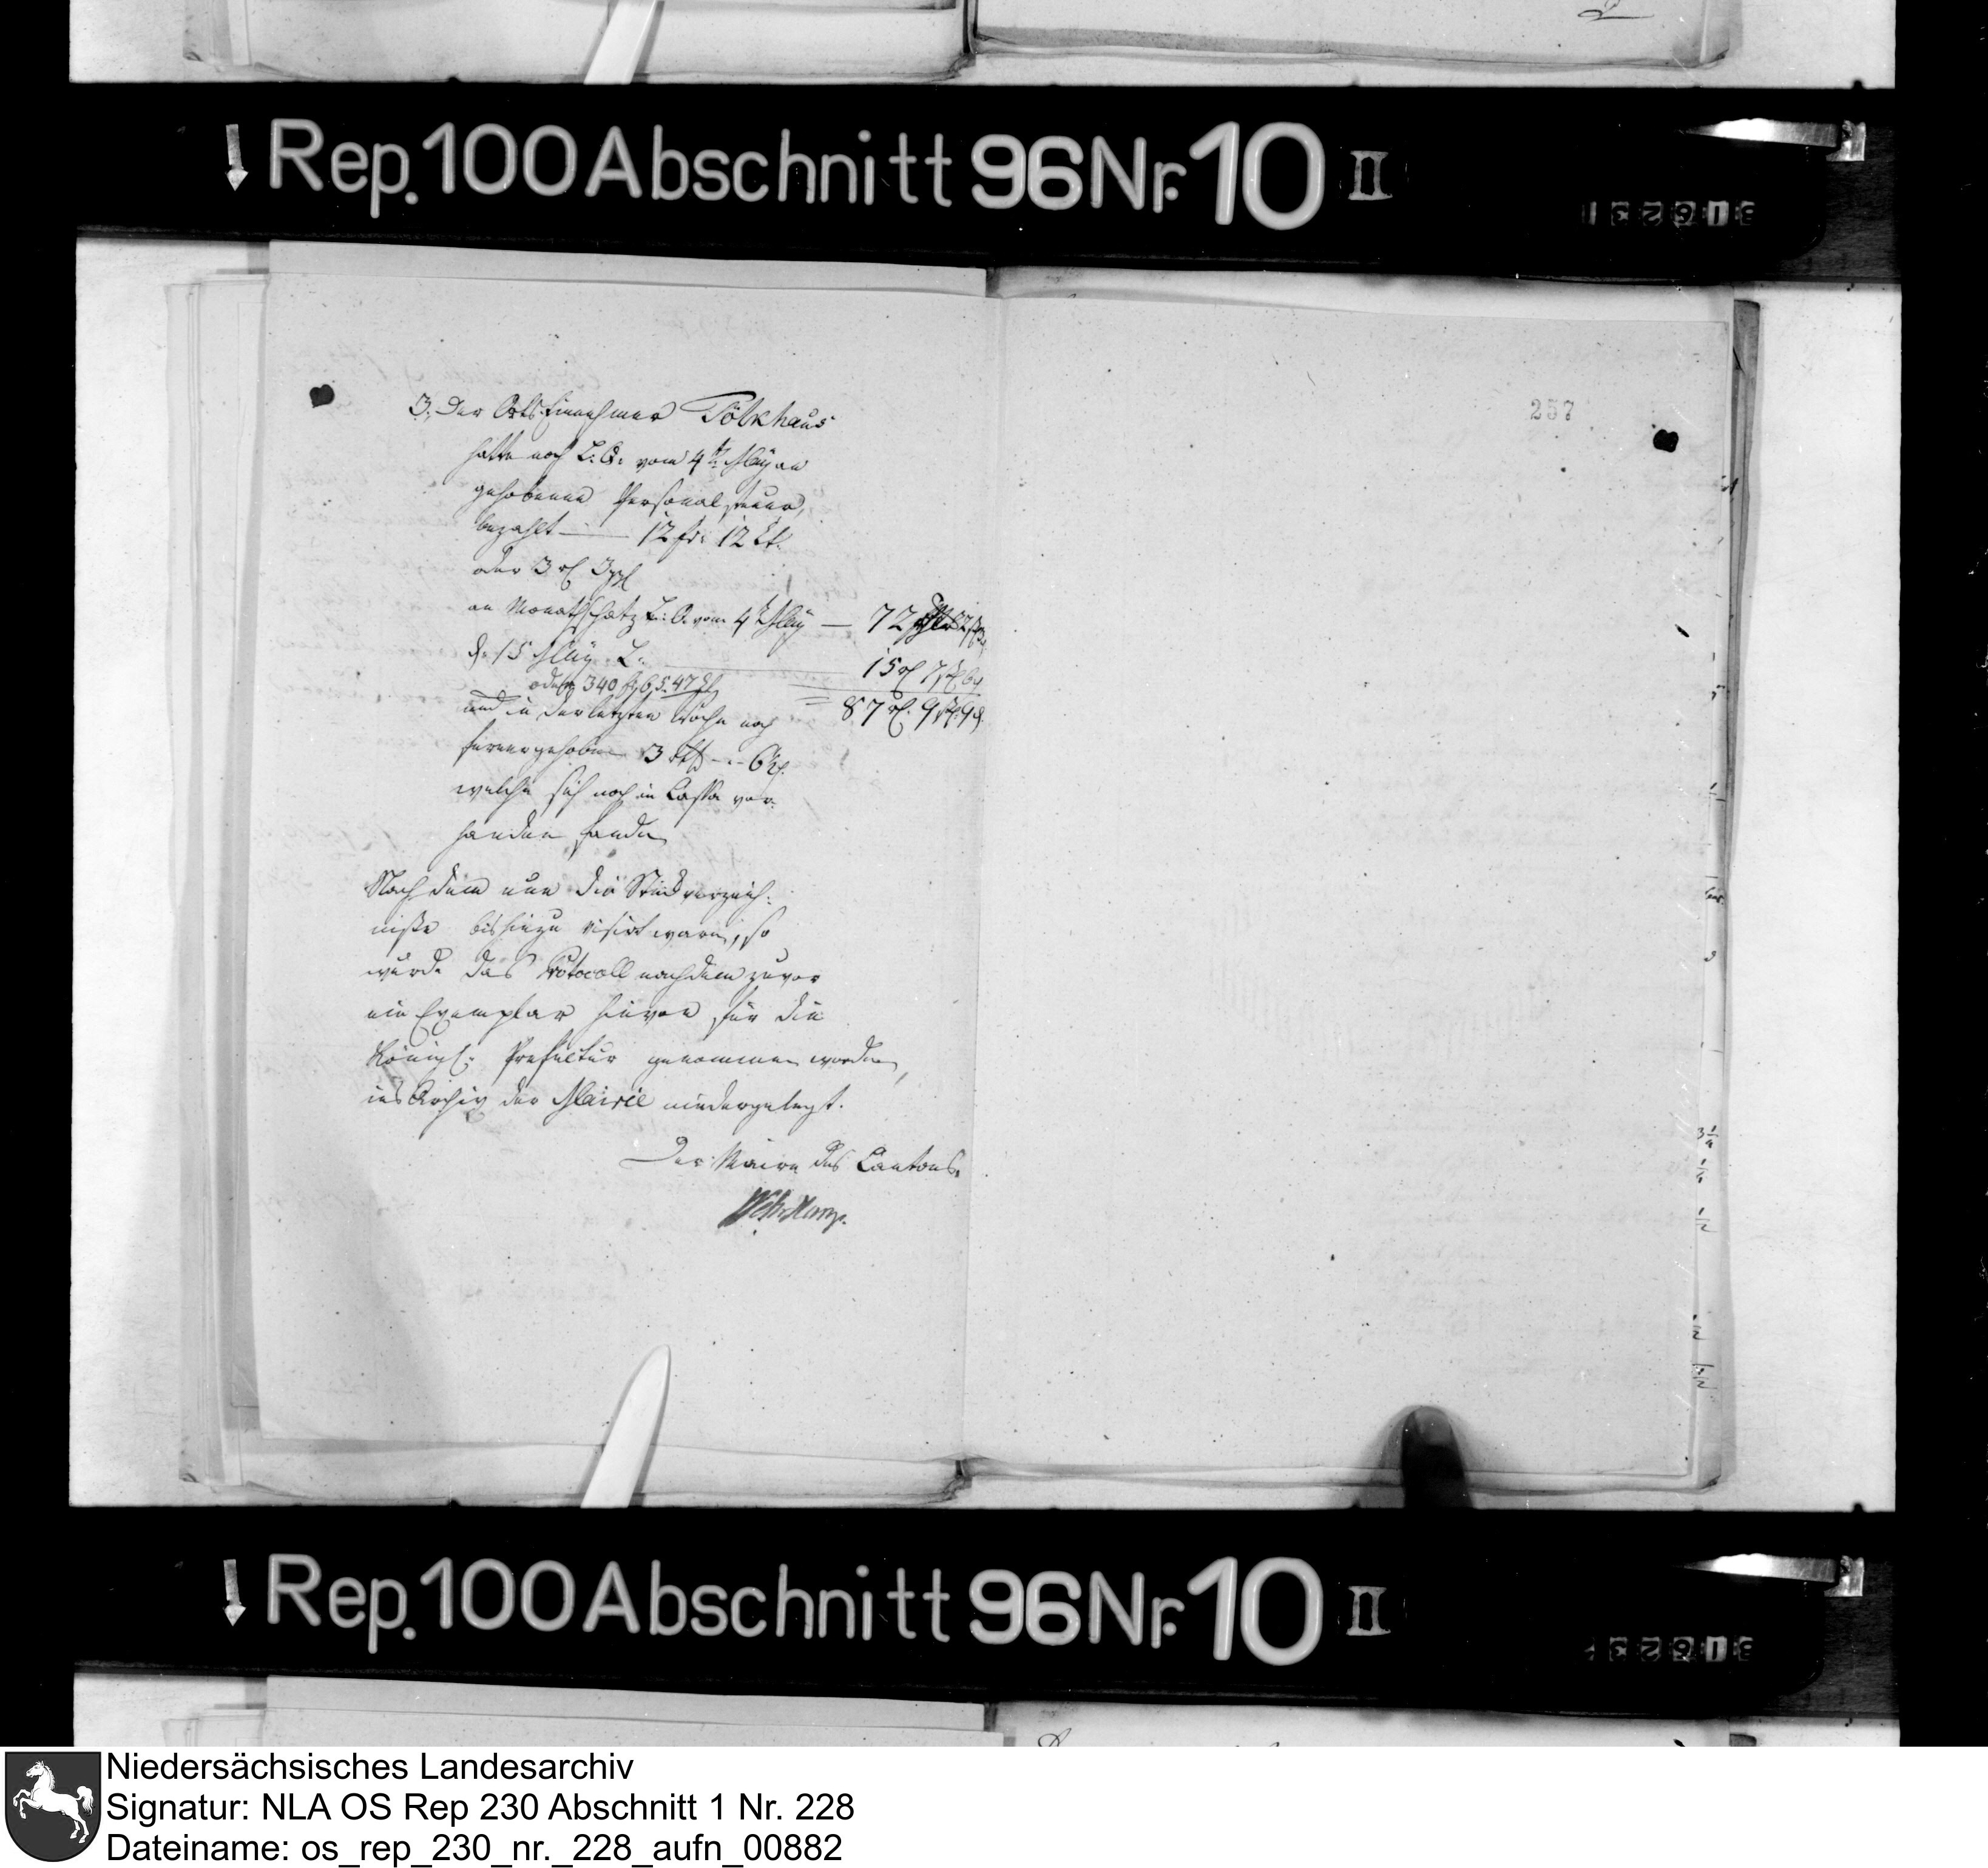 Rep. 100 Abschnitt 96 Nr. 10 II
257
3., Der Orts Einnehmer Pölkhaus
hatte nach L: Q: vom 4ten May an
gehobener Personalsteuer,
bezahlt — 12 fr: 12 Ct.
oder 3 rt 3
an Monathschatz L: Q. vom 4t May — 72
d. 15 May L. 15 rt 7 6
oder 340 47
= 87 rt. 9 9
und in der letzten Woche noch
ferner gehoben 3 6
welche sich noch in Cassa vor-
handen fanden
Nachdem nun die Stückverzeich:
niße bis hiezu visirt waren, so
wurde das Protocoll nachdem zuvor
ein Exemplar hievon für die
Königl: Prefectur genommen worden,
ins Archiv der Mairie niedergelegt.
Der Maire des Cantons.
Rep. 100 Abschnitt 96 Nr. 10 II
Niedersächsisches Landesarchiv
Signatur: NLA OS Rep 230 Abschnitt 1 Nr. 228
Dateiname: os_rep_230_nr._228_aufn_00882